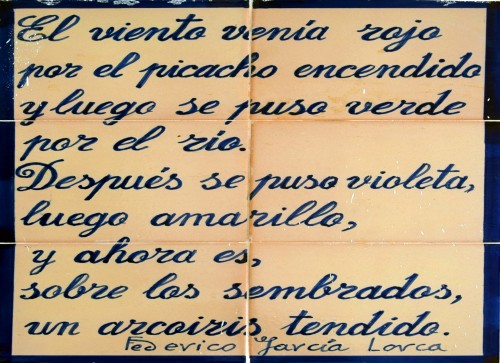 El viento venía rojo
por el picacho encendido
y luego se puso verde
por el río.
Después se puso violeta,
luego amarillo,
y ahora es,
sobre los sembrados,
un arcoiris tendido.
Federico García Lorca